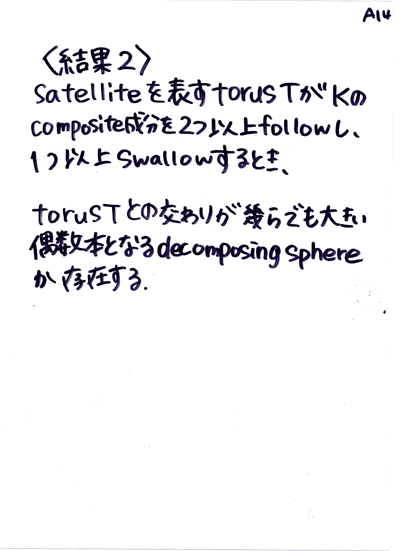 A14
〈結果2〉
Satelliteを表すtorus TがKの
composite成分を2つ以上followし、
1つ以上swallowするとき、
torus Tとの交わりが幾らでも大きい
偶数本となるdecomposing sphere
が存在する.